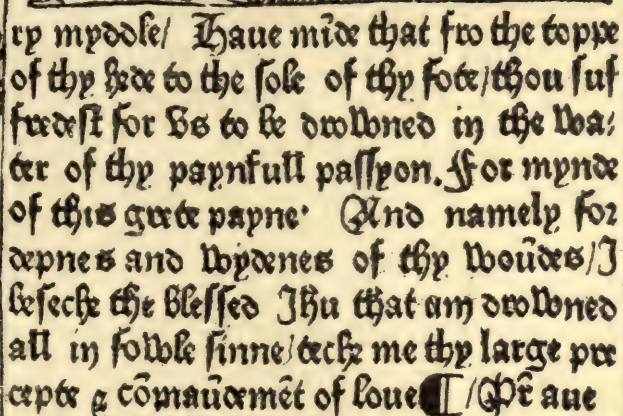 ry myddle/ Haue mīde that fro the toppe
of thy hede to the sole of thy fote/thou suf
fredest for vs to be drowned in the wa⸗
ter of thy paynfull passyon. For mynde
of this grete payne· And namely for
depnes and wydenes of thy woūdes/I
beseche the blessed Jhu that am drowned
all in fowle sinne/teche me thy large pre
cepte ⁊ cōmaūdemēt of loue ¶/Pr̄ aue